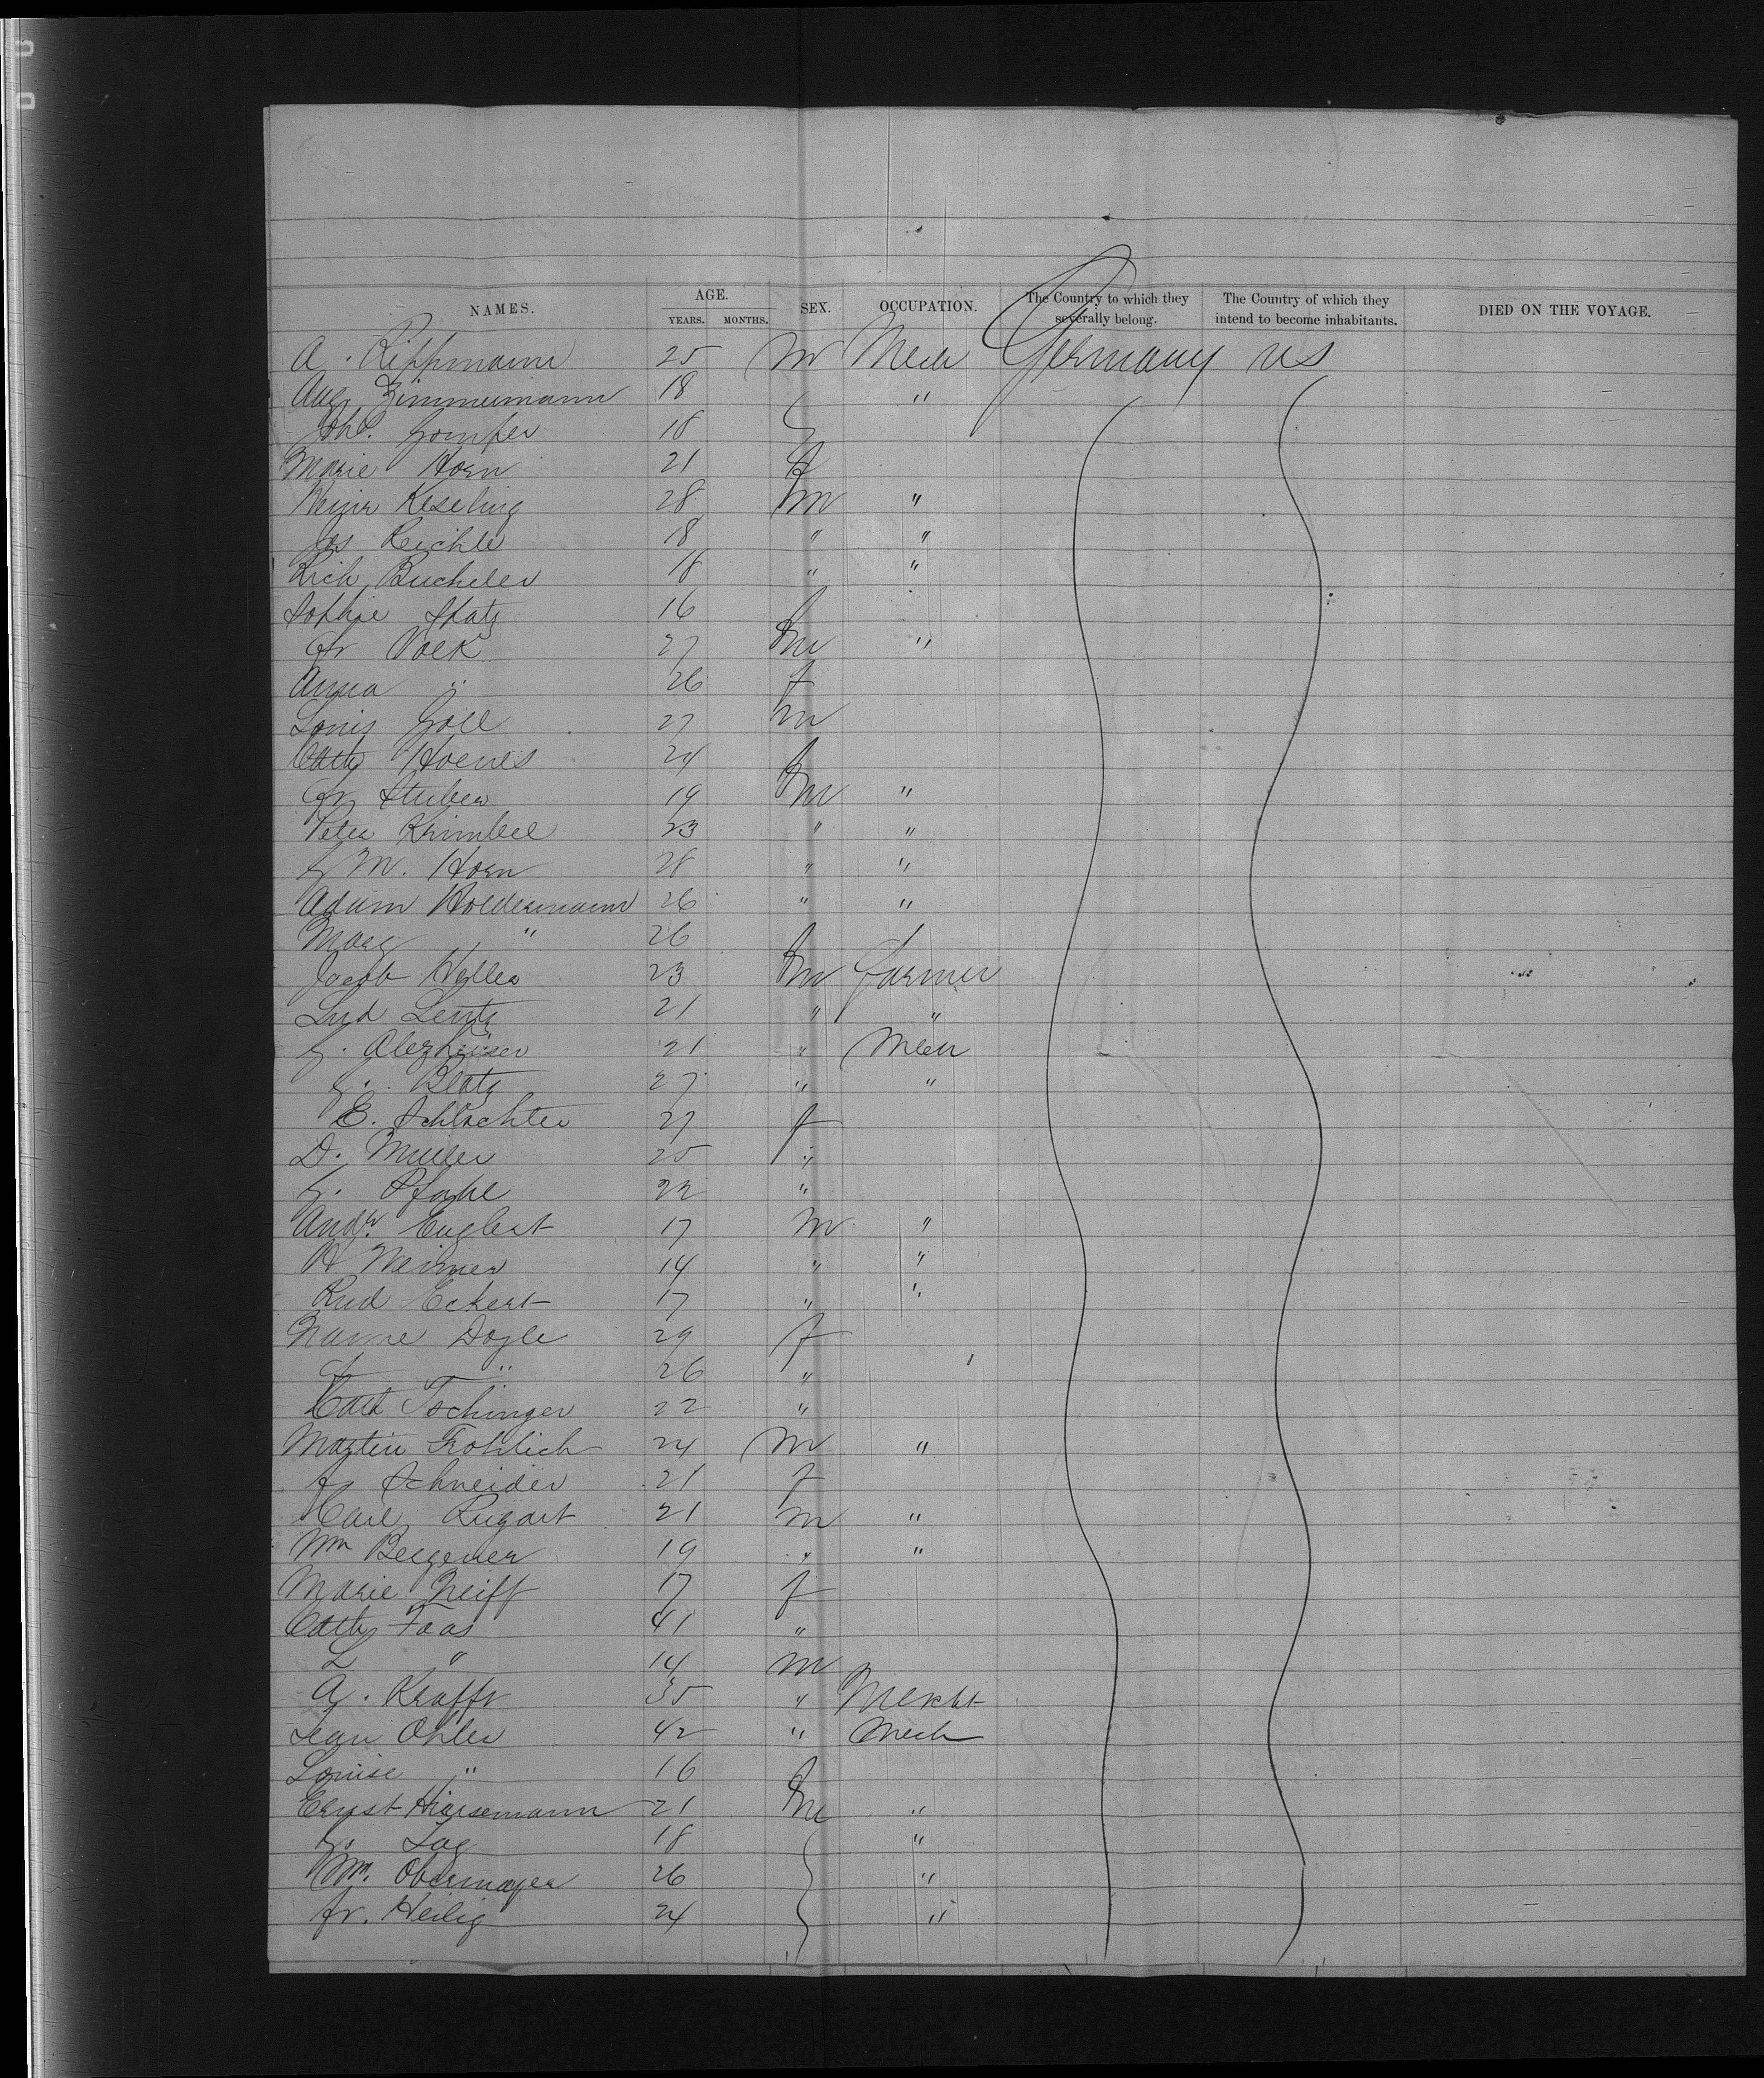 NAMES. AGE. SEX. OCCUPATION. The Country to which they severally belong. The Country of which they intend to become inhabitants. DIED ON THE VOYAGE.
YEARS. MONTHS.
A. Rippmann 25 m Mech Germany US
Aug Zimmermann 18 "
Joh. Gomper 18
Marie Horn 21 f
Keseling 28 m "
Jos Reichle 18 " "
Rich Bucheler 18 " "
Sophie Spatz 16 f
Fr Volk 27 m "
Anna " 26 f
Louis Goll 27 m
Cath Hoenes 24 f
Fr Stuber 19 m "
Peter Krimbel 23 " "
G M. Horn 28 " "
Adam Holdermann 26 " "
Marg " 26 f
Jacob Heller 23 m Farmer
Lud Lentz 21 " "
G. 21 " Mech
G. Blatz 27 " "
E. Schlachter 27 f
D. Muller 25 "
G. Pfahl 22 "
Andr. Englert 17 m "
H Weimer 14 " "
Rud Eckert 17 " "
Nanne Dogle 29 f
F " 26 "
Cath Tschinger 22 "
Martin Frohlich 24 m "
Schneider 21 f
Carl Rugart 21 m "
Wm 19 " "
Marie Neiff 17 f
Cath Faas 41 "
L " 14 m
A. Krafft 35 " Mercht
Jean Ohler 42 " Mech
Louise " 16 f
Ernst Hiarsemann 21 m "
G. 18 "
Wm. Obermayer 26 "
Fr. Heilig 24 "